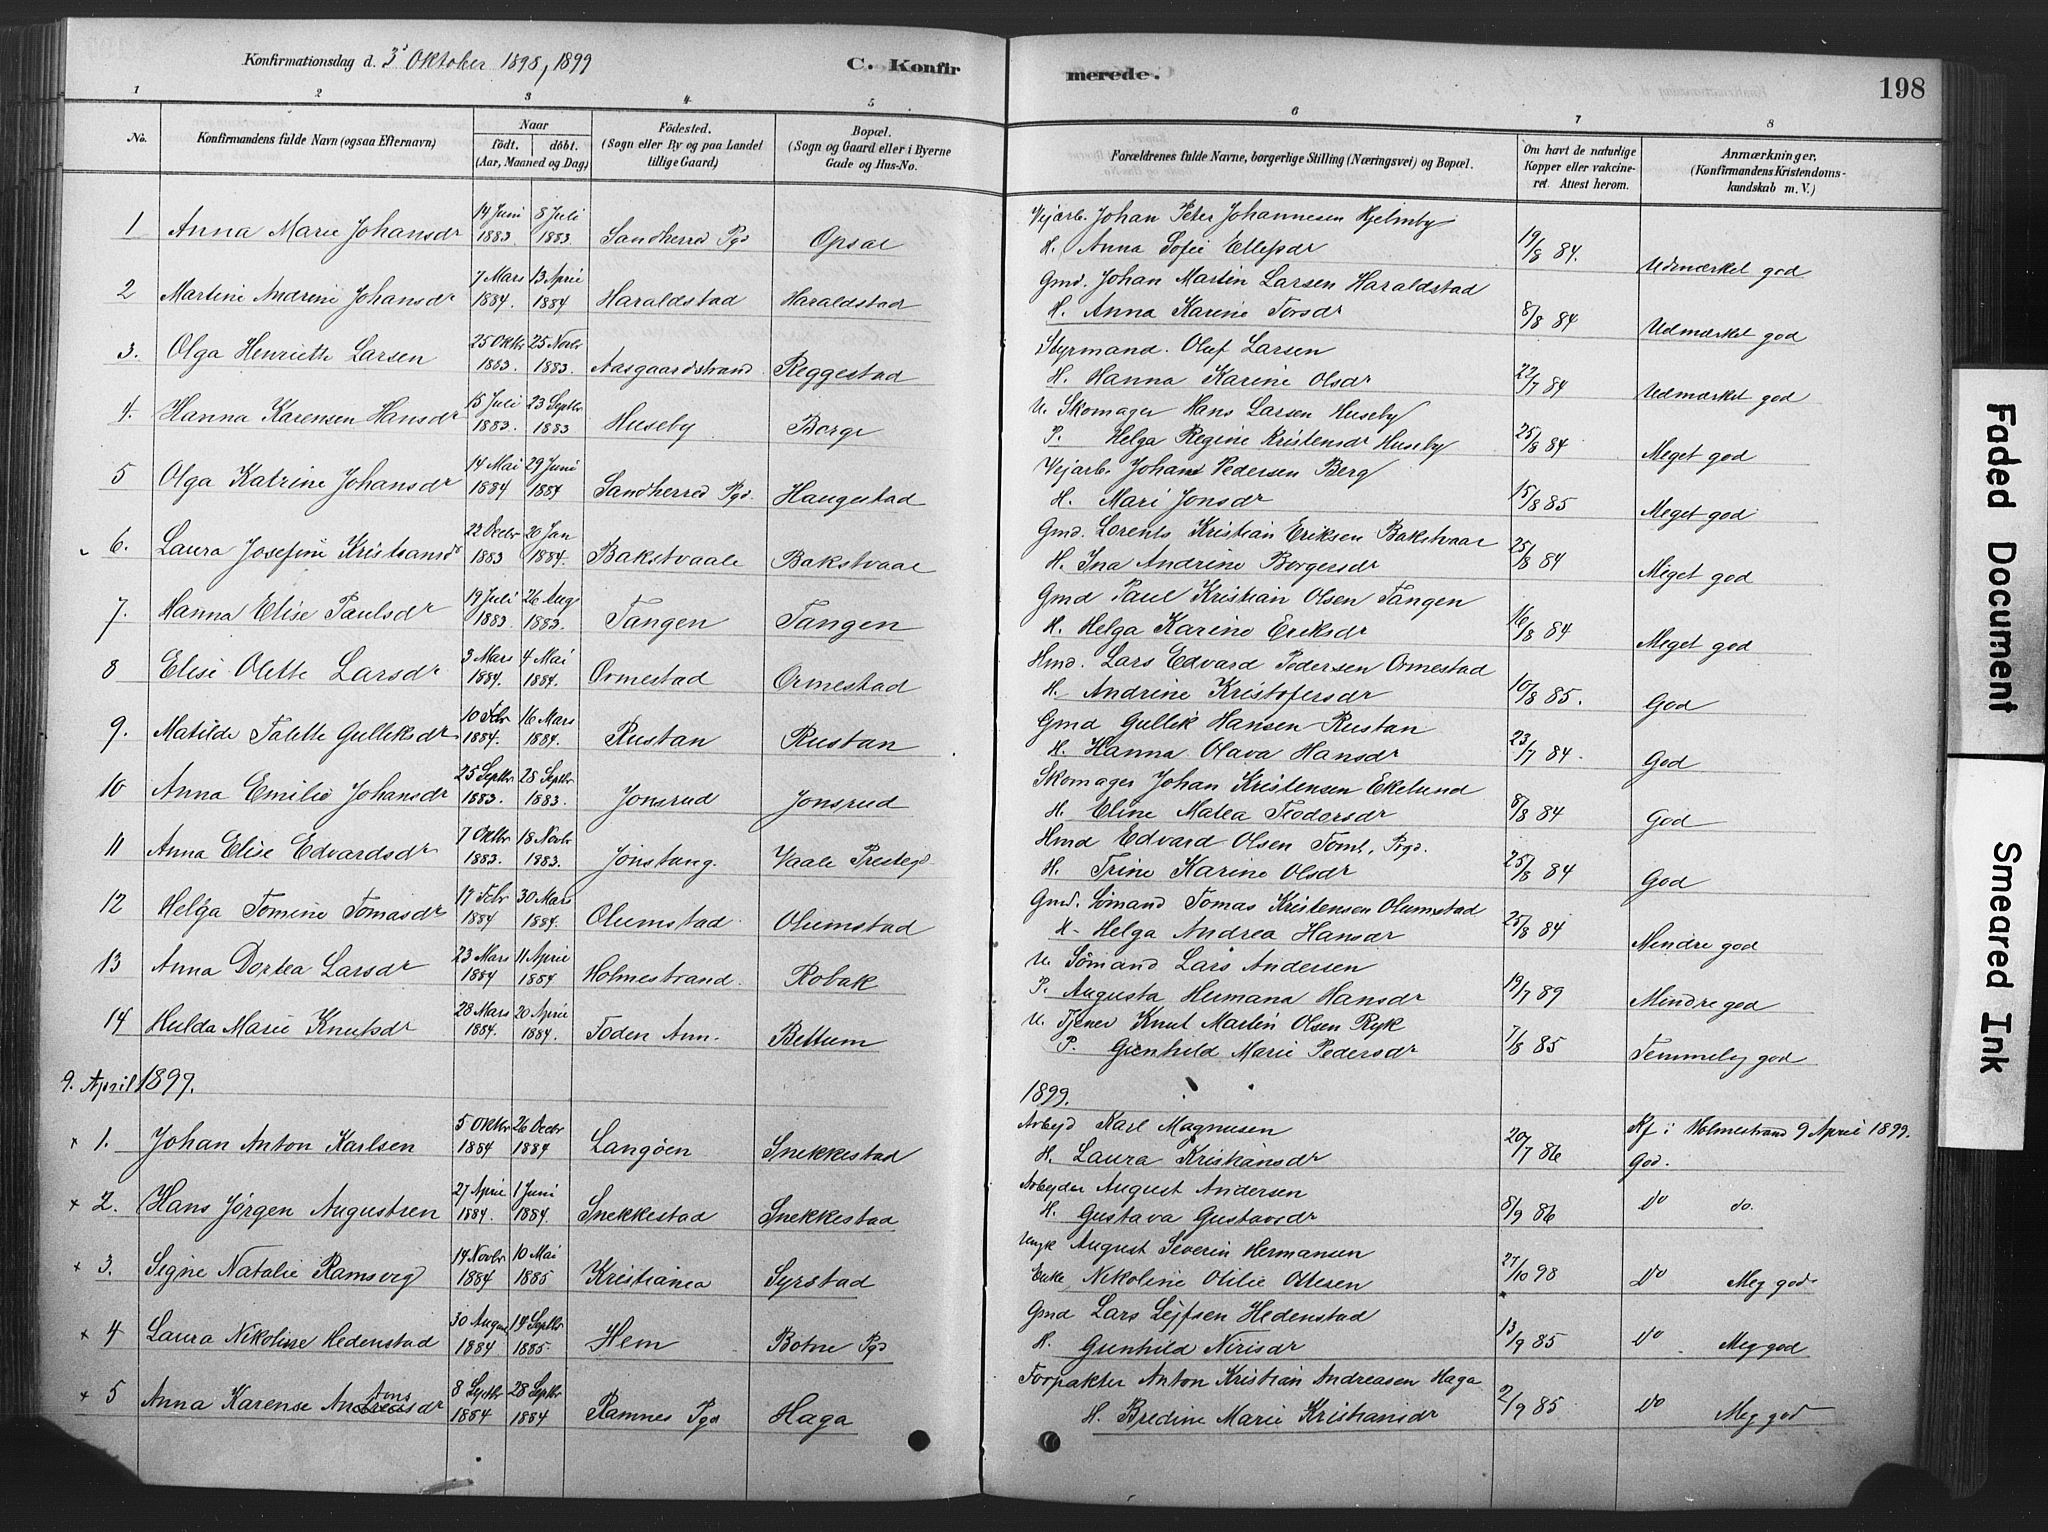 Konfirmationsdag d. 3 Oktober 1898, 1899
C. Konfirmerede.
198
1 2 3 4 5 6 7 8
No.
Konfirmandens fulde Navn (ogsaa Efternavn)
Naar
født. døbt.
(Aar, Maaned og Dag)
Fødested.
(Sogn eller By og paa Landet tillige Gaard)
Bopæl.
(Sogn og Gaard eller i Byerne Gade og Hus-No.
Forældrenes fulde Navne, borgerlige Stilling (Næringsvei) og Bopæl.
Om havt de naturlige Kopper eller vakcineret. Attest herom.
Anmærkninger,
(Konfirmandens Kristendomskundskab m. V.)
1 Anna Marie Johansdr 14 Juni 1883. 8 Juli 1883. Sandherred Pgd Opsal Vejarb. Johan Peter Johannesen Hjelmby
H. Anna Sofie Ellefsdr 19/8 84. Udmærket god
2 Martine Andrine Johansdr 7 Mars 1884. 13 April 1884 Haraldstad Haraldstad Gmd. Johan Martin Larsen Haraldstad
H. Anna Karine Torsdr 8/8 84 Udmærket god
3. Olga Henriette Larsen 25 Oktbr 1883. 25 Novbr 1883. Aasgaardstrand Reggestad Styrmand. Oluf Larsen
H. Hanna Karine Olsdr 22/7 84 Udmærket god
4. Hanna Karensen Hansdr 15 Juli 1883. 23 Septbr 1883 Huseby Borge U. Skomager Hans Larsen Huseby
P. Helga Regine Kristensdr Huseby 25/8 84 Meget god
5 Olga Katrine Johansdr 14 Mai 1884 29 Juni 1884 Sandherred Pgd. Haugestad Vejarb. Johan Pedersen Berg
H. Mari Jonsdr 15/8 85 Meget god
6. Laura Josefine Kristiansdr 22 Decbr 1883 20 Jan 1884. Bakstvaale Bakstvaal Gmd. Lorents Kristian Eriksen Bakstvaal
H. Ina Andrine Borgersdr 25/8 84 Meget god
7. Hanna Elise Paulsdr 19 Juli 1883. 26 Aug 1883. Tangen Tangen Gmd Paul Kristian Olsen Tangen
H. Helga Karine Eriksdr 16/8 84 Meget god
8 Elise Olette Larsdr 3 Mars 1884. 4 Mai 1884. Ormestad Ormestad Hmd. Lars Edvard Pedersen Ormestad
H. Andrine Kristofersdr 10/8 85. God
9. Matilde Talette Gulleksdr 10 Febr 1884. 16 Mars 1884. Rustan Rustan Gmd Gullik Hansen Rustan
H. Hanna Olava Hansdr 23/7 84. God
10 Anna Emilie Johansdr 25 Septbr 1883. 28 Septbr 1883. Jonsrud Jonsrud Skomager Johan Kristensen Ekelund
H. Eline Matea Teodorsdr 8/8 84 God
11 Anna Elise Edvardsdr 7 Oktbr 1883. 18 Novbr 1883. Jonstang. Vaale Prestegd Hmd Edvard Olsen Tomt, Prgd.
H. Trine Karine Olsdr 25/8 84 God
12 Helga Tomine Tomasdr 17 Febr 1884 30 Mars 1884. Olumstad Olumstad Gmd. Sömand Tomas Kristensen Olumstad
H. Helga Andrea Hansdr 25/8 84 Mindre god
13 Anna Dortea Larsdr 23 Mars 1884 11 April 1884 Holmestrand. Robak U. Sömand Lars Andersen
P. Augusta Hermana Hansdr 19/7 89 Mindre god
14 Hulda Marie Knutsdr 28 Mars 1884. 20 April 1884. Foden Ann. Bettum U. Tjener Knut Martin Olsen Ryk
P. Gunhild Marie Pedersdr 7/8 85 Temmelig god
9. April 1899.
1899.
x 1. Johan Anton Karlsen 5 Oktbr 1884 26 Decbr 1884 Langöen Snekkestad Arbejd Karl Magnusen
H. Laura Kristiansdr 20/7 86 Kf i Holmestrand 9 April 1899.
God.
x 2. Hans Jörgen Augustsen 27 April 1884. 1 Juni 1884. Snekkestad Snekkestad Arbejder August Andersen
H. Gustava Gustavsdr 8/9 86 Do do.
x 3. Signe Natalie Ramsvig 14 Novbr 1884 10 Mai 1885 Kristiania Syrstad Ungk August Severin Hermansen
Enke Nikoline Otilie Ottesen 27/10 98 Do Meg god
x 4 Laura Nikoline Hedenstad 30 August 1884 14 Septbr 1885. Hem Botne Pgd Gmd Lars Lejfsen Hedenstad
H. Gunhild Nirisdr 13/9 85 Do Meg god
x 5 Anna Karense Antonsdr 8 Septbr 1884 28 Septbr 1884 Ramnes Pgd Haga Forpakter Anton Kristian Andreasen Haga
H. Bredine Marie Kristiansdr 2/9 85 Do Meg god
Faded Document
Smeared Ink